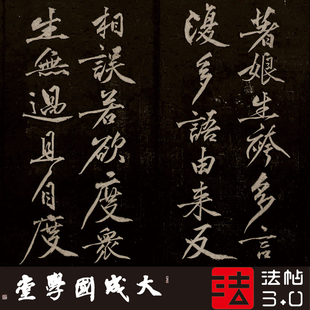 著娘生袴多言
復多語由来反
相誤若欲度眾
生無過且自度
大成國學堂
法
法帖
3.0